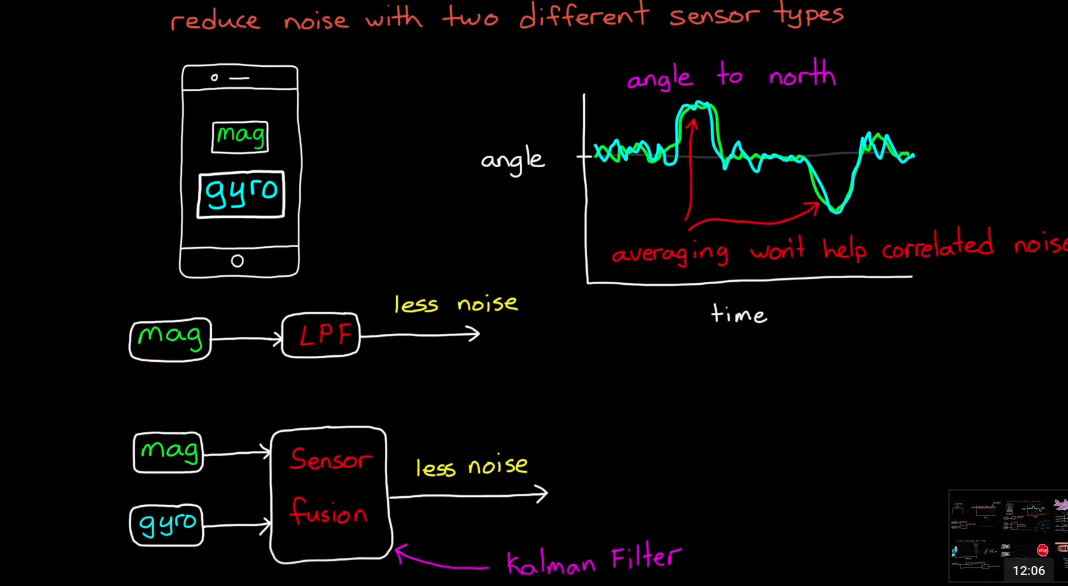 reduce noise with two different sensor types
mag
gyro
angle to north
angle
averaging won't help correlated noise
time
mag
LPF
less noise
mag
gyro
Sensor
fusion
less noise
Kalman Filter
12:06